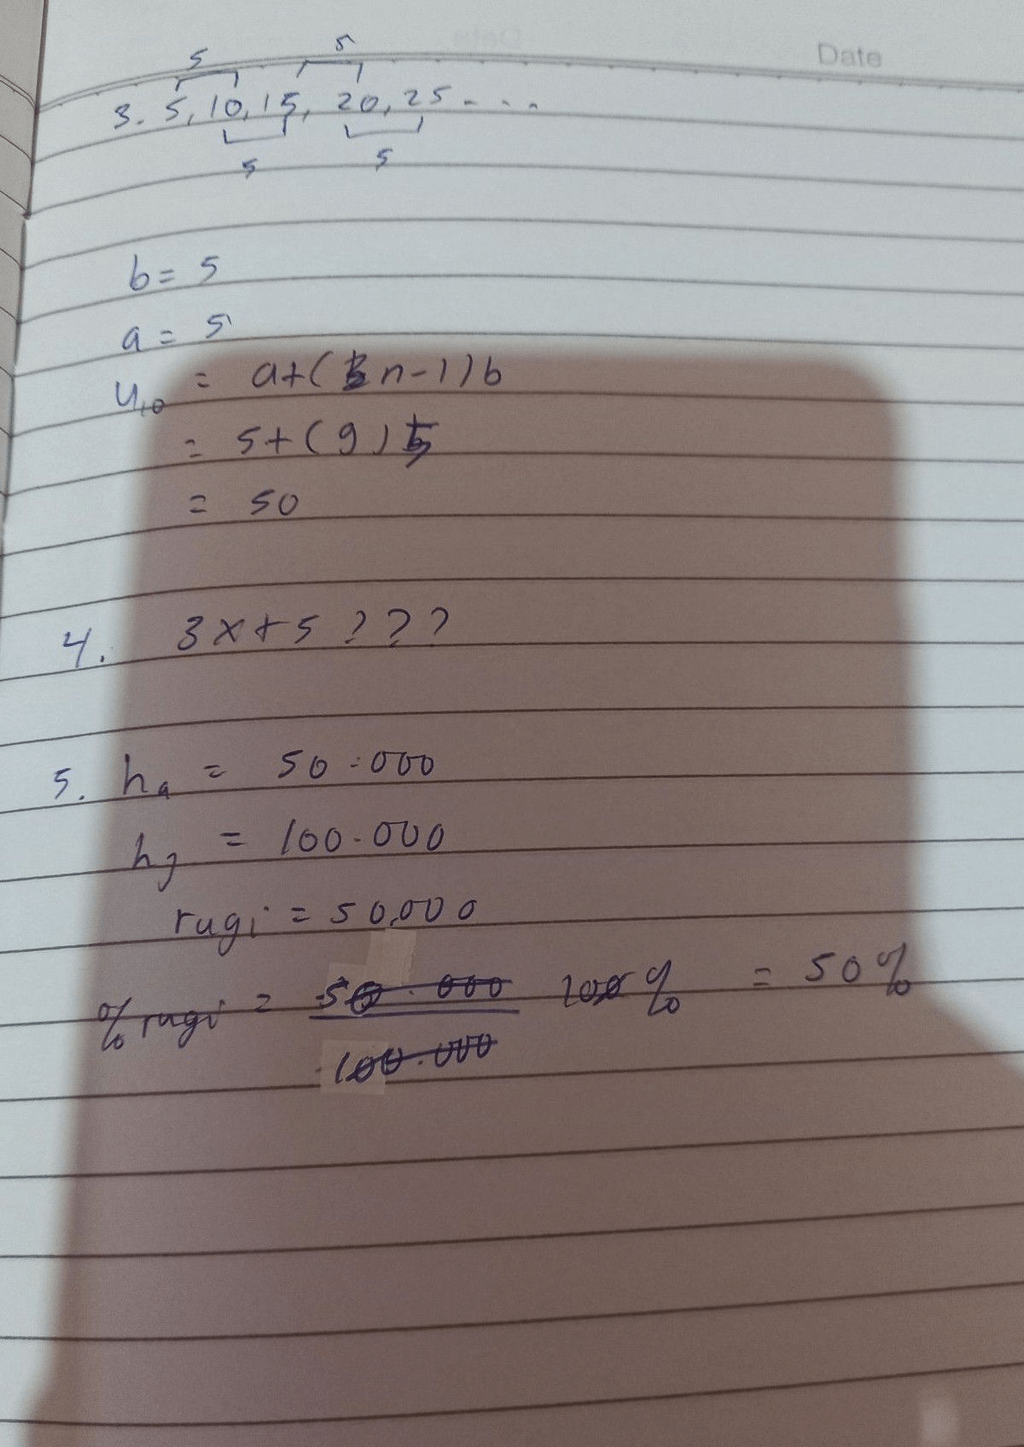 Date
5 5
3. 5, 10, 15, 20, 25 - . . .
5 5
b = 5
a = 5
U10 = a + ( n - 1 ) b
= 5 + ( 9 ) 5
= 50
4. 3x + 5 ? ? ?
5. ha = 50.000
hj = 100.000
rugi = 50.000
% rugi = 50.000 100% = 50%
100.000